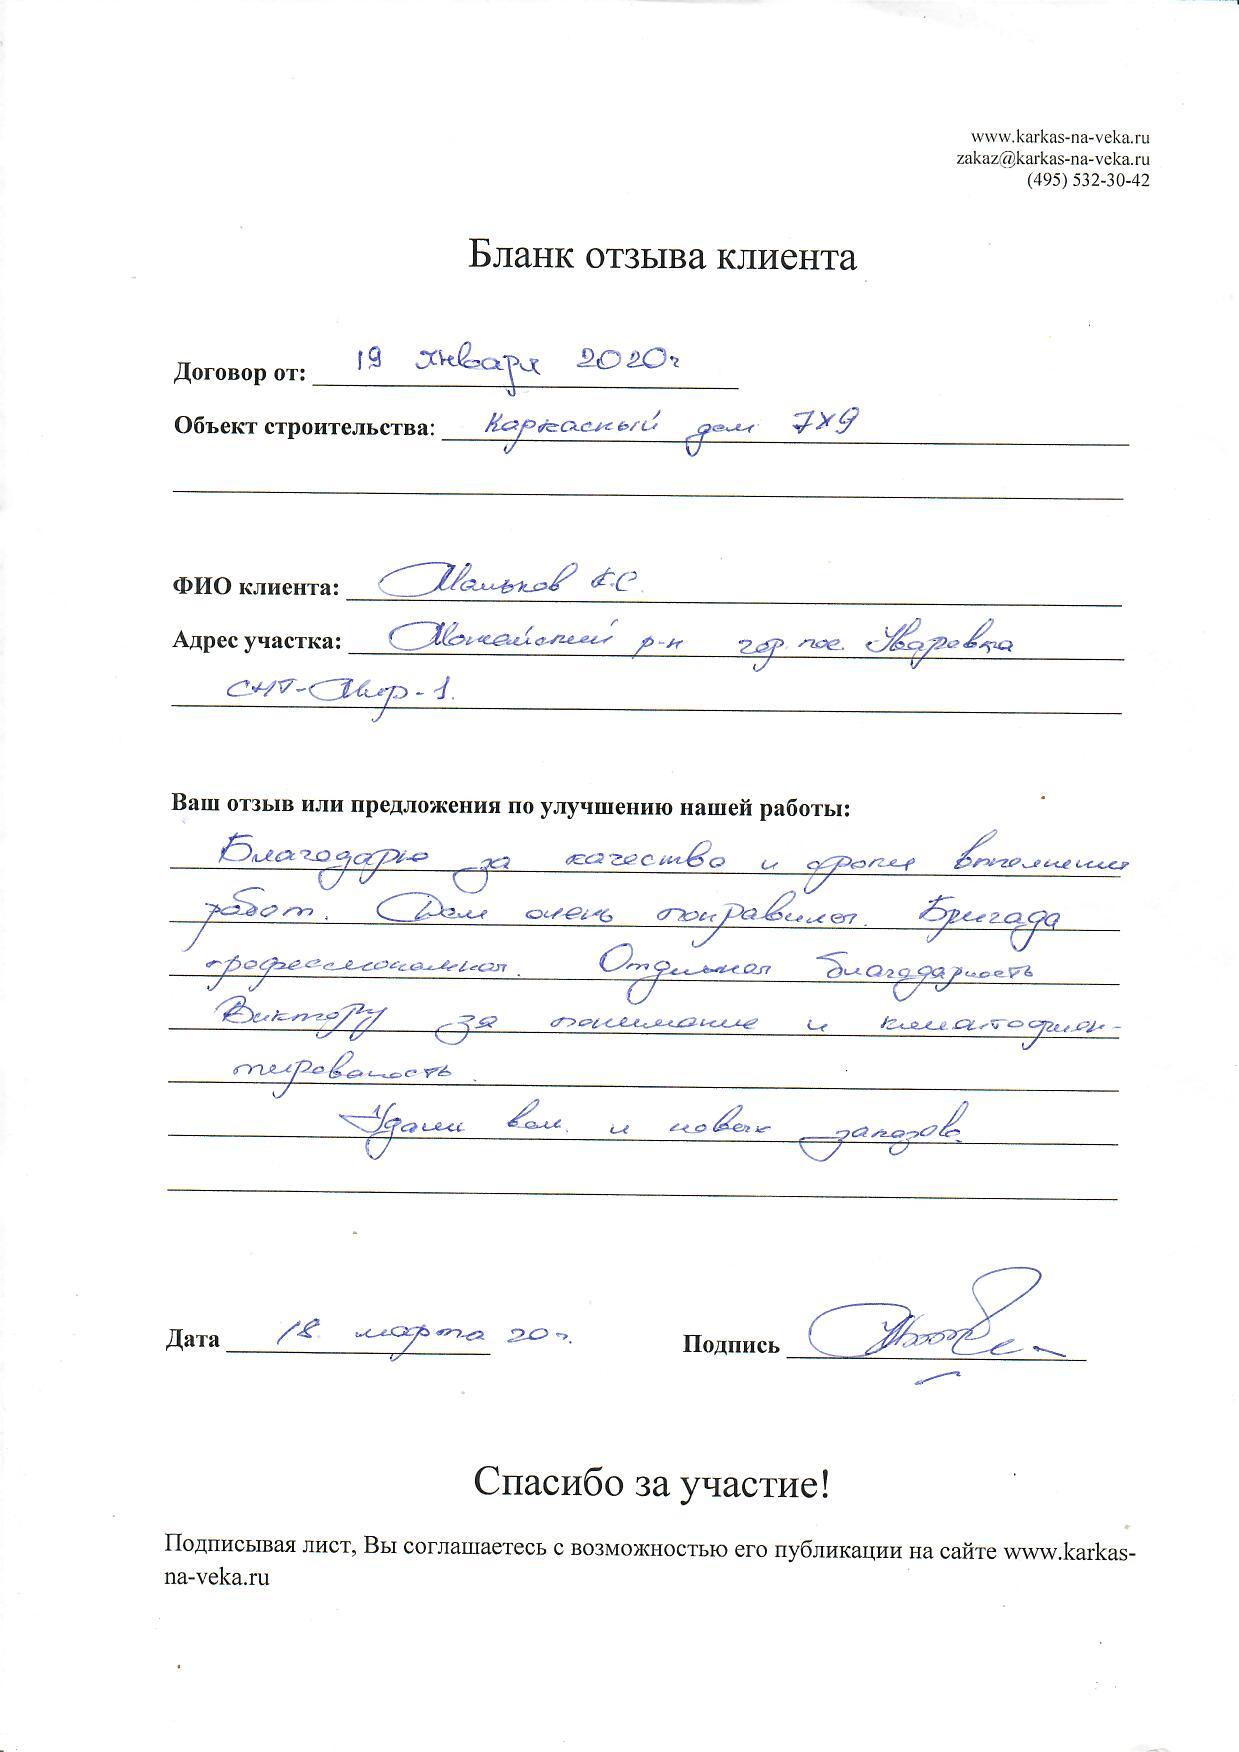 www.karkas-na-veka.ru
zakaz@karkas-na-veka.ru
(495) 532-30-42
Бланк отзыва клиента
Договор от: 19 января 2020г
Объект строительства: Каркасный дом 7х9
ФИО клиента: Мальков К.С.
Адрес участка: Можайский р-н гор. пос. Уваровка
СНТ-Мир-1.
Ваш отзыв или предложения по улучшению нашей работы:
Благодарю за качество и сроки выполнения
работ. Дом очень понравился. Бригада
профессиональная. Отдельная благодарность
Виктору за понимание и клиентоориен-
тированость.
Удачи вам. и новых заказов.
Дата 18 марта 20 г.
Подпись
Спасибо за участие!
Подписывая лист, Вы соглашаетесь с возможностью его публикации на сайте www.karkas-
na-veka.ru